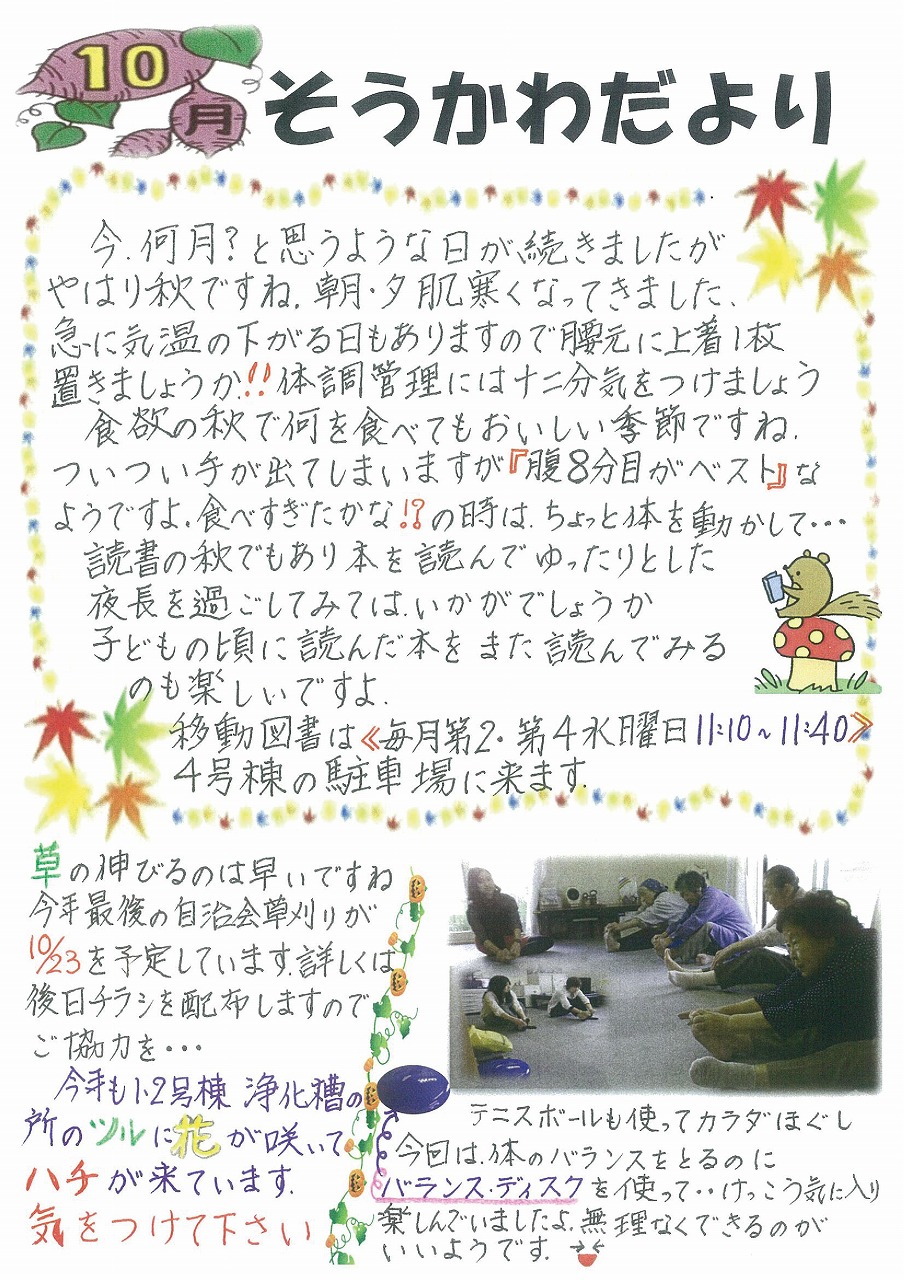 10月 そうかわだより
今、何月?と思うような日が続きましたが
やはり秋ですね。朝・夕肌寒くなってきました、
急に気温の下がる日もありますので腰元に上着1枚
置きましょうか!!体調管理には十二分気をつけましょう
食欲の秋で何を食べてもおいしい季節ですね。
ついつい手が出てしまいますが『腹8分目がベスト』な
ようですよ。食べすぎたかな!?の時は、ちょっと体を動かして・・・
読書の秋でもあり本を読んでゆったりとした
夜長を過ごしてみてはいかがでしょうか
子どもの頃に読んだ本をまた読んでみる
のも楽しいですよ。
移動図書は《毎月第2・第4水曜日11:10~11:40》
4号棟の駐車場に来ます。
草の伸びるのは早いですね
今年最後の自治会草刈りが
10/23を予定しています。詳しくは
後日チラシを配布しますので
ご協力を・・・
今年も1.2号棟 浄化槽の
所のツルに花が咲いて
ハチが来ています。
気をつけて下さい
テニスボールも使ってカラダほぐし
今回は、体のバランスをとるのに
バランス・ディスクを使って・・けっこう気に入り
楽しんでいましたよ。無理なくできるのが
いいようです。